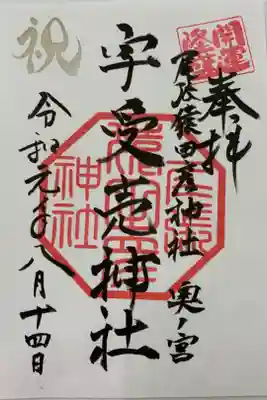 開運
奉拝
尾張猿田彦神社 奥ノ宮
宇受売神社
祝
令和元年八月十四日
神社